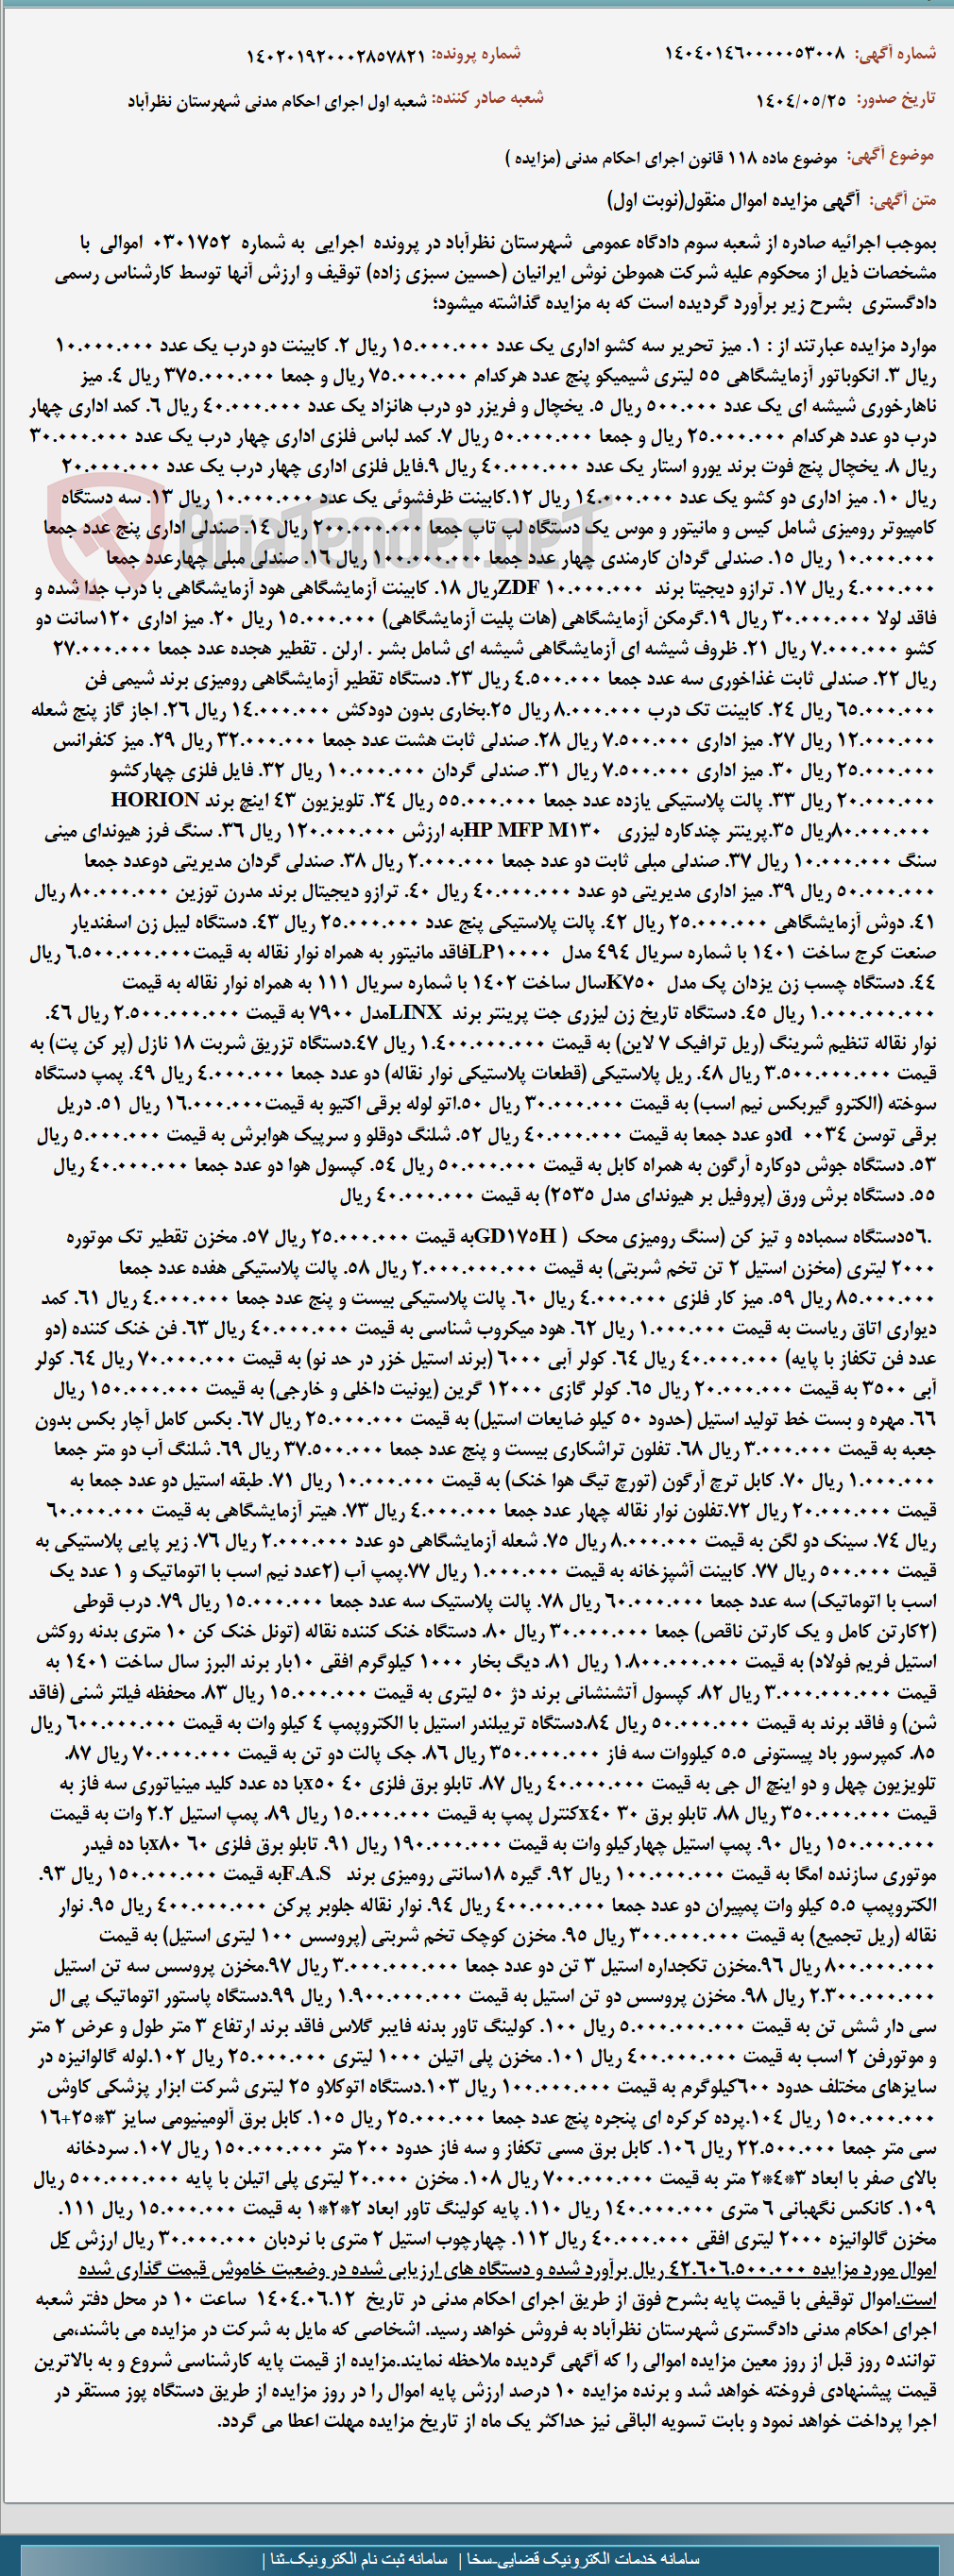 شماره آگهی: ۱۴۰۴۰۱۴۶۰۰۰۰۰۵۳۰۰۸ شماره پرونده: ۱۴۰۲۰۱۹۲۰۰۰۲۸۵۷۸۲۱
تاریخ صدور: ۱۴۰۴/۰۵/۲۵ شعبه صادر کننده: شعبه اول اجرای احکام مدنی شهرستان نظرآباد
موضوع آگهی: موضوع ماده ۱۱۸ قانون اجرای احکام مدنی (مزایده )
متن آگهی: آگهی مزایده اموال منقول(نوبت اول)
بموجب اجرائیه صادره از شعبه سوم دادگاه عمومی شهرستان نظرآباد در پرونده اجرایی به شماره ۰۳۰۱۷۵۲ اموالی با
مشخصات ذیل از محکوم علیه شرکت هموطن نوش ایرانیان (حسین سبزی زاده) توقیف و ارزش آنها توسط کارشناس رسمی
دادگستری بشرح زیر برآورد گردیده است که به مزایده گذاشته میشود؛
موارد مزایده عبارتند از : ۱. میز تحریر سه کشو اداری یک عدد ۱۵.۰۰۰.۰۰۰ ریال ۲. کابینت دو درب یک عدد ۱۰.۰۰۰.۰۰۰
ریال ۳. انکوباتور آزمایشگاهی ۵۵ لیتری شیمیکو پنج عدد هرکدام ۷۵.۰۰۰.۰۰۰ ریال و جمعا ۳۷۵.۰۰۰.۰۰۰ ریال ۴. میز
ناهارخوری شیشه ای یک عدد ۵۰۰.۰۰۰ ریال ۵. یخچال و فریزر دو درب هانزاد یک عدد ۴۰.۰۰۰.۰۰۰ ریال ۶. کمد اداری چهار
درب دو عدد هرکدام ۲۵.۰۰۰.۰۰۰ ریال و جمعا ۵۰.۰۰۰.۰۰۰ ریال ۷. کمد لباس فلزی اداری چهار درب یک عدد ۳۰.۰۰۰.۰۰۰
ریال ۸. یخچال پنج فوت برند یورو استار یک عدد ۴۰.۰۰۰.۰۰۰ ریال ۹.فایل فلزی اداری چهار درب یک عدد ۲۰.۰۰۰.۰۰۰
ریال ۱۰. میز اداری دو کشو یک عدد ۱۴.۰۰۰.۰۰۰ ریال ۱۲.کابینت ظرفشوئی یک عدد ۱۰.۰۰۰.۰۰۰ ریال ۱۳. سه دستگاه
کامپیوتر رومیزی شامل کیس و مانیتور و موس یک دستگاه لپ تاپ جمعا ۲۰۰.۰۰۰.۰۰۰ ریال ۱۴. صندلی اداری پنج عدد جمعا
۱۰.۰۰۰.۰۰۰ ریال ۱۵. صندلی گردان کارمندی چهار عدد جمعا ۱۰۰.۰۰۰.۰۰۰ ریال ۱۶. صندلی مبلی چهارعدد جمعا
۴.۰۰۰.۰۰۰ ریال ۱۷. ترازو دیجیتا برند ZDF ۱۰.۰۰۰.۰۰۰ریال ۱۸. کابینت آزمایشگاهی هود آزمایشگاهی با درب جدا شده و
فاقد لولا ۳۰.۰۰۰.۰۰۰ ریال ۱۹.گرمکن آزمایشگاهی (هات پلیت آزمایشگاهی) ۱۵.۰۰۰.۰۰۰ ریال ۲۰. میز اداری ۱۲۰سانت دو
کشو ۷.۰۰۰.۰۰۰ ریال ۲۱. ظروف شیشه ای آزمایشگاهی شیشه ای شامل بشر . ارلن . تقطیر هجده عدد جمعا ۲۷.۰۰۰.۰۰۰
ریال ۲۲. صندلی ثابت غذاخوری سه عدد جمعا ۴.۵۰۰.۰۰۰ ریال ۲۳. دستگاه تقطیر آزمایشگاهی رومیزی برند شیمی فن
۶۵.۰۰۰.۰۰۰ ریال ۲۴. کابینت تک درب ۸.۰۰۰.۰۰۰ ریال ۲۵.بخاری بدون دودکش ۱۴.۰۰۰.۰۰۰ ریال ۲۶. اجاز گاز پنج شعله
۱۲.۰۰۰.۰۰۰ ریال ۲۷. میز اداری ۷.۵۰۰.۰۰۰ ریال ۲۸. صندلی ثابت هشت عدد جمعا ۳۲.۰۰۰.۰۰۰ ریال ۲۹. میز کنفرانس
۲۵.۰۰۰.۰۰۰ ریال ۳۰. میز اداری ۷.۵۰۰.۰۰۰ ریال ۳۱. صندلی گردان ۱۰.۰۰۰.۰۰۰ ریال ۳۲. فایل فلزی چهارکشو
۲۰.۰۰۰.۰۰۰ ریال ۳۳. پالت پلاستیکی یازده عدد جمعا ۵۵.۰۰۰.۰۰۰ ریال ۳۴. تلویزیون ۴۳ اینچ برند HORION
۸۰.۰۰۰.۰۰۰ریال ۳۵.پرینتر چندکاره لیزری HP MFP M۱۳۰به ارزش ۱۲۰.۰۰۰.۰۰۰ ریال ۳۶. سنگ فرز هیوندای مینی
سنگ ۱۰.۰۰۰.۰۰۰ ریال ۳۷. صندلی مبلی ثابت دو عدد جمعا ۲.۰۰۰.۰۰۰ ریال ۳۸. صندلی گردان مدیریتی دوعدد جمعا
۵۰.۰۰۰.۰۰۰ ریال ۳۹. میز اداری مدیریتی دو عدد ۴۰.۰۰۰.۰۰۰ ریال ۴۰. ترازو دیجیتال برند مدرن توزین ۸۰.۰۰۰.۰۰۰ ریال
۴۱. دوش آزمایشگاهی ۲۵.۰۰۰.۰۰۰ ریال ۴۲. پالت پلاستیکی پنج عدد ۲۵.۰۰۰.۰۰۰ ریال ۴۳. دستگاه لیبل زن اسفندیار
صنعت کرج ساخت ۱۴۰۱ با شماره سریال ۴۹۴ مدل LP۱۰۰۰۰فاقد مانیتور به همراه نوار نقاله به قیمت۶.۵۰۰.۰۰۰.۰۰۰ ریال
۴۴. دستگاه چسب زن یزدان پک مدل K۷۵۰سال ساخت ۱۴۰۲ با شماره سریال ۱۱۱ به همراه نوار نقاله به قیمت
۱.۰۰۰.۰۰۰.۰۰۰ ریال ۴۵. دستگاه تاریخ زن لیزری جت پرینتر برند LINXمدل ۷۹۰۰ به قیمت ۲.۵۰۰.۰۰۰.۰۰۰ ریال ۴۶.
نوار نقاله تنظیم شرینگ (ریل ترافیک ۷ لاین) به قیمت ۱.۴۰۰.۰۰۰.۰۰۰ ریال ۴۷.دستگاه تزریق شربت ۱۸ نازل (پر کن پت) به
قیمت ۳.۵۰۰.۰۰۰.۰۰۰ ریال ۴۸. ریل پلاستیکی (قطعات پلاستیکی نوار نقاله) دو عدد جمعا ۴.۰۰۰.۰۰۰ ریال ۴۹. پمپ دستگاه
سوخته (الکترو گیربکس نیم اسب) به قیمت ۳۰.۰۰۰.۰۰۰ ریال ۵۰.اتو لوله برقی اکتیو به قیمت۱۶.۰۰۰.۰۰۰ ریال ۵۱. دریل
برقی توسن d ۰۰۳۴دو عدد جمعا به قیمت ۴۰.۰۰۰.۰۰۰ ریال ۵۲. شلنگ دوقلو و سرپیک هوابرش به قیمت ۵.۰۰۰.۰۰۰ ریال
۵۳. دستگاه جوش دوکاره آرگون به همراه کابل به قیمت ۵۰.۰۰۰.۰۰۰ ریال ۵۴. کپسول هوا دو عدد جمعا ۴۰.۰۰۰.۰۰۰ ریال
۵۵. دستگاه برش ورق (پروفیل بر هیوندای مدل ۲۵۳۵) به قیمت ۴۰.۰۰۰.۰۰۰ ریال
.۵۶دستگاه سمباده و تیز کن (سنگ رومیزی محک ( GD۱۷۵Hبه قیمت ۲۵.۰۰۰.۰۰۰ ریال ۵۷. مخزن تقطیر تک موتوره
۲۰۰۰ لیتری (مخزن استیل ۲ تن تخم شربتی) به قیمت ۲.۰۰۰.۰۰۰.۰۰۰ ریال ۵۸. پالت پلاستیکی هفده عدد جمعا
۸۵.۰۰۰.۰۰۰ ریال ۵۹. میز کار فلزی ۴.۰۰۰.۰۰۰ ریال ۶۰. پالت پلاستیکی بیست و پنج عدد جمعا ۴.۰۰۰.۰۰۰ ریال ۶۱. کمد
دیواری اتاق ریاست به قیمت ۱.۰۰۰.۰۰۰ ریال ۶۲. هود میکروب شناسی به قیمت ۴۰.۰۰۰.۰۰۰ ریال ۶۳. فن خنک کننده (دو
عدد فن تکفاز با پایه) ۴۰.۰۰۰.۰۰۰ ریال ۶۴. کولر آبی ۶۰۰۰ (برند استیل خزر در حد نو) به قیمت ۷۰.۰۰۰.۰۰۰ ریال ۶۴. کولر
آبی ۳۵۰۰ به قیمت ۲۰.۰۰۰.۰۰۰ ریال ۶۵. کولر گازی ۱۲۰۰۰ گرین (یونیت داخلی و خارجی) به قیمت ۱۵۰.۰۰۰.۰۰۰ ریال
۶۶. مهره و بست خط تولید استیل (حدود ۵۰ کیلو ضایعات استیل) به قیمت ۲۵.۰۰۰.۰۰۰ ریال ۶۷. بکس کامل آچار بکس بدون
جعبه به قیمت ۳.۰۰۰.۰۰۰ ریال ۶۸. تفلون تراشکاری بیست و پنج عدد جمعا ۳۷.۵۰۰.۰۰۰ ریال ۶۹. شلنگ آب دو متر جمعا
۱.۰۰۰.۰۰۰ ریال ۷۰. کابل ترچ آرگون (تورچ تیگ هوا خنک) به قیمت ۱۰.۰۰۰.۰۰۰ ریال ۷۱. طبقه استیل دو عدد جمعا به
قیمت ۲۰.۰۰۰.۰۰۰ ریال ۷۲.تفلون نوار نقاله چهار عدد جمعا ۴.۰۰۰.۰۰۰ ریال ۷۳. هیتر آزمایشگاهی به قیمت ۶۰.۰۰۰.۰۰۰
ریال ۷۴. سینک دو لگن به قیمت ۸.۰۰۰.۰۰۰ ریال ۷۵. شعله آزمایشگاهی دو عدد ۲.۰۰۰.۰۰۰ ریال ۷۶. زیر پایی پلاستیکی به
قیمت ۵۰۰.۰۰۰ ریال ۷۷. کابینت آشپزخانه به قیمت ۱.۰۰۰.۰۰۰ ریال ۷۷.پمپ آب (۲عدد نیم اسب با اتوماتیک و ۱ عدد یک
اسب با اتوماتیک) سه عدد جمعا ۶۰.۰۰۰.۰۰۰ ریال ۷۸. پالت پلاستیک سه عدد جمعا ۱۵.۰۰۰.۰۰۰ ریال ۷۹. درب قوطی
(۲کارتن کامل و یک کارتن ناقص) جمعا ۳۰.۰۰۰.۰۰۰ ریال ۸۰. دستگاه خنک کننده نقاله (تونل خنک کن ۱۰ متری بدنه روکش
استیل فریم فولاد) به قیمت ۱.۸۰۰.۰۰۰.۰۰۰ ریال ۸۱. دیگ بخار ۱۰۰۰ کیلوگرم افقی ۱۰بار برند البرز سال ساخت ۱۴۰۱ به
قیمت ۳.۰۰۰.۰۰۰.۰۰۰ ریال ۸۲. کپسول آتشنشانی برند دژ ۵۰ لیتری به قیمت ۱۵.۰۰۰.۰۰۰ ریال ۸۳. محفظه فیلتر شنی (فاقد
شن) و فاقد برند به قیمت ۵۰.۰۰۰.۰۰۰ ریال ۸۴.دستگاه تریبلندر استیل با الکتروپمپ ۴ کیلو وات به قیمت ۶۰۰.۰۰۰.۰۰۰ ریال
۸۵. کمپرسور باد پیستونی ۵.۵ کیلووات سه فاز ۳۵۰.۰۰۰.۰۰۰ ریال ۸۶. جک پالت دو تن به قیمت ۷۰.۰۰۰.۰۰۰ ریال ۸۷.
تلویزیون چهل و دو اینچ ال جی به قیمت ۴۰.۰۰۰.۰۰۰ ریال ۸۷. تابلو برق فلزی ۴۰ x۵۰با ده عدد کلید مینیاتوری سه فاز به
قیمت ۳۵۰.۰۰۰.۰۰۰ ریال ۸۸. تابلو برق ۳۰ x۴۰کنترل پمپ به قیمت ۱۵.۰۰۰.۰۰۰ ریال ۸۹. پمپ استیل ۲.۲ وات به قیمت
۱۵۰.۰۰۰.۰۰۰ ریال ۹۰. پمپ استیل چهارکیلو وات به قیمت ۱۹۰.۰۰۰.۰۰۰ ریال ۹۱. تابلو برق فلزی ۶۰ x۸۰با ده فیدر
موتوری سازنده امگا به قیمت ۱۰۰.۰۰۰.۰۰۰ ریال ۹۲. گیره ۱۸سانتی رومیزی برند F.A.Sبه قیمت ۱۵۰.۰۰۰.۰۰۰ ریال ۹۳.
الکتروپمپ ۵.۵ کیلو وات پمپیران دو عدد جمعا ۴۰۰.۰۰۰.۰۰۰ ریال ۹۴. نوار نقاله جلوبر پرکن ۴۰۰.۰۰۰.۰۰۰ ریال ۹۵. نوار
نقاله (ریل تجمیع) به قیمت ۳۰۰.۰۰۰.۰۰۰ ریال ۹۵. مخزن کوچک تخم شربتی (پروسس ۱۰۰ لیتری استیل) به قیمت
۸۰۰.۰۰۰.۰۰۰ ریال ۹۶.مخزن تکجداره استیل ۳ تن دو عدد جمعا ۳.۰۰۰.۰۰۰.۰۰۰ ریال ۹۷.مخزن پروسس سه تن استیل
۲.۳۰۰.۰۰۰.۰۰۰ ریال ۹۸. مخزن پروسس دو تن استیل به قیمت ۱.۹۰۰.۰۰۰.۰۰۰ ریال ۹۹.دستگاه پاستور اتوماتیک پی ال
سی دار شش تن به قیمت ۵.۰۰۰.۰۰۰.۰۰۰ ریال ۱۰۰. کولینگ تاور بدنه فایبر گلاس فاقد برند ارتفاع ۳ متر طول و عرض ۲ متر
و موتورفن ۲ اسب به قیمت ۴۰۰.۰۰۰.۰۰۰ ریال ۱۰۱. مخزن پلی اتیلن ۱۰۰۰ لیتری ۲۵.۰۰۰.۰۰۰ ریال ۱۰۲.لوله گالوانیزه در
سایزهای مختلف حدود ۶۰۰کیلوگرم به قیمت ۱۰۰.۰۰۰.۰۰۰ ریال ۱۰۳.دستگاه اتوکلاو ۲۵ لیتری شرکت ابزار پزشکی کاوش
۱۵۰.۰۰۰.۰۰۰ ریال ۱۰۴.پرده کرکره ای پنجره پنج عدد جمعا ۲۵.۰۰۰.۰۰۰ ریال ۱۰۵. کابل برق آلومینیومی سایز ۳*۲۵+۱۶
سی متر جمعا ۲۲.۵۰۰.۰۰۰ ریال ۱۰۶. کابل برق مسی تکفاز و سه فاز حدود ۲۰۰ متر ۱۵۰.۰۰۰.۰۰۰ ریال ۱۰۷. سردخانه
بالای صفر با ابعاد ۳*۴*۲ متر به قیمت ۷۰۰.۰۰۰.۰۰۰ ریال ۱۰۸. مخزن ۲۰.۰۰۰ لیتری پلی اتیلن با پایه ۵۰۰.۰۰۰.۰۰۰ ریال
۱۰۹. کانکس نگهبانی ۶ متری ۱۴۰.۰۰۰.۰۰۰ ریال ۱۱۰. پایه کولینگ تاور ابعاد ۲*۲*۱ به قیمت ۱۵.۰۰۰.۰۰۰ ریال ۱۱۱.
مخزن گالوانیزه ۲۰۰۰ لیتری افقی ۴۰.۰۰۰.۰۰۰ ریال ۱۱۲. چهارچوب استیل ۲ متری با نردبان ۳۰.۰۰۰.۰۰۰ ریال ارزش کل
اموال مورد مزایده ۴۲.۶۰۶.۵۰۰.۰۰۰ ریال برآورد شده و دستگاه های ارزیابی شده در وضعیت خاموش قیمت گذاری شده
است.اموال توقیفی با قیمت پایه بشرح فوق از طریق اجرای احکام مدنی در تاریخ ۱۴۰۴.۰۶.۱۲ ساعت ۱۰ در محل دفتر شعبه
اجرای احکام مدنی دادگستری شهرستان نظرآباد به فروش خواهد رسید. اشخاصی که مایل به شرکت در مزایده می باشند،می
توانند۵ روز قبل از روز معین مزایده اموالی را که آگهی گردیده ملاحظه نمایند.مزایده از قیمت پایه کارشناسی شروع و به بالاترین
قیمت پیشنهادی فروخته خواهد شد و برنده مزایده ۱۰ درصد ارزش پایه اموال را در روز مزایده از طریق دستگاه پوز مستقر در
اجرا پرداخت خواهد نمود و بابت تسویه الباقی نیز حداکثر یک ماه از تاریخ مزایده مهلت اعطا می گردد.
AriaTender.neT
سامانه خدمات الکترونیک قضایی-سخا | سامانه ثبت نام الکترونیک-ثنا |